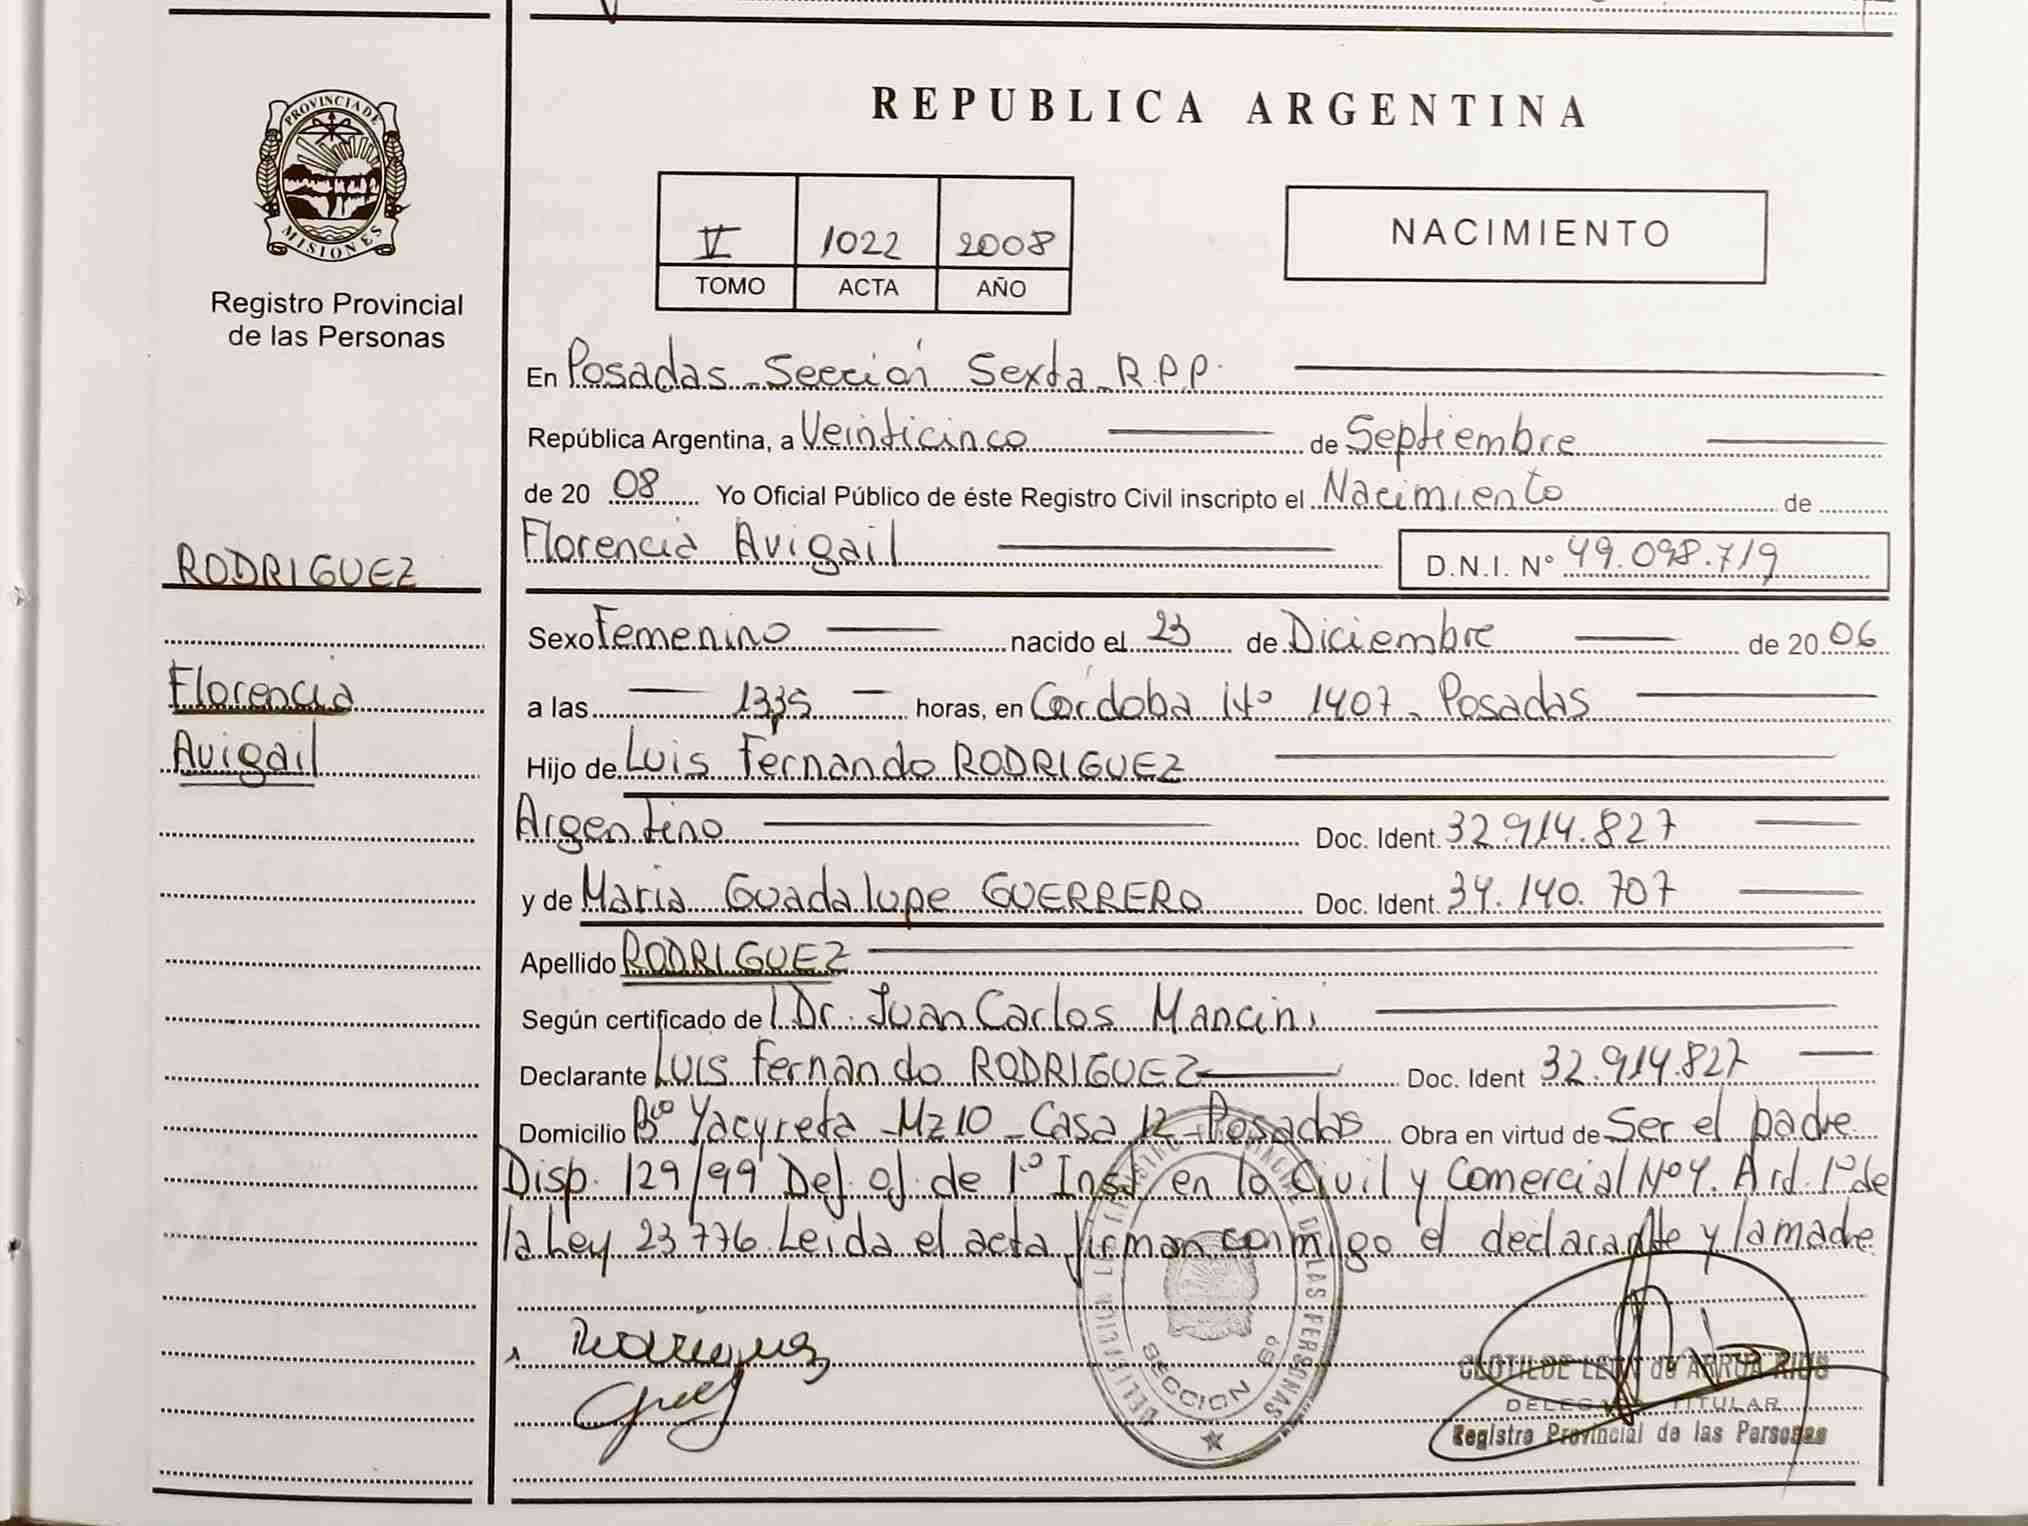 PROVINCIA DE
MISIONES
Registro Provincial
de las Personas
RODRIGUEZ
Florencia
Avigail
REPUBLICA ARGENTINA
V 1022 2008
TOMO ACTA AÑO
NACIMIENTO
En Posadas Sección Sexta R.P.P.
República Argentina, a Veinticinco de Septiembre
de 20 08 Yo Oficial Público de éste Registro Civil inscripto el Nacimiento de
Florencia Avigail D.N.I. Nº 49.098.719
Sexo Femenino nacido el 23 de Diciembre de 20 06
a las 13,35 horas, en Córdoba Nº 1407 - Posadas
Hijo de Luis Fernando RODRIGUEZ
Argentino Doc. Ident. 32.914.827
y de Maria Guadalupe GUERRERO Doc. Ident. 34.140.707
Apellido RODRIGUEZ
Según certificado de l Dr. Juan Carlos Mancini
Declarante Luis Fernando RODRIGUEZ Doc. Ident 32.914.827
Domicilio Bº Yacyreta - Mz 10 - Casa 12 - Posadas Obra en virtud de Ser el padre
Disp. 129/99 Def. of. de 1º Inst. en lo Civil y Comercial Nº 4. Art. 1º de
la Ley 23776. Leida el acta firman conmigo el declarante y la madre
Rodriguez
DELEGACION REGISTRO PROVINCIAL DE LAS PERSONAS
SECCION 6º
CLOTILDE de ARRUA RIOS
DELEGADA TITULAR
Registro Provincial de las Personas